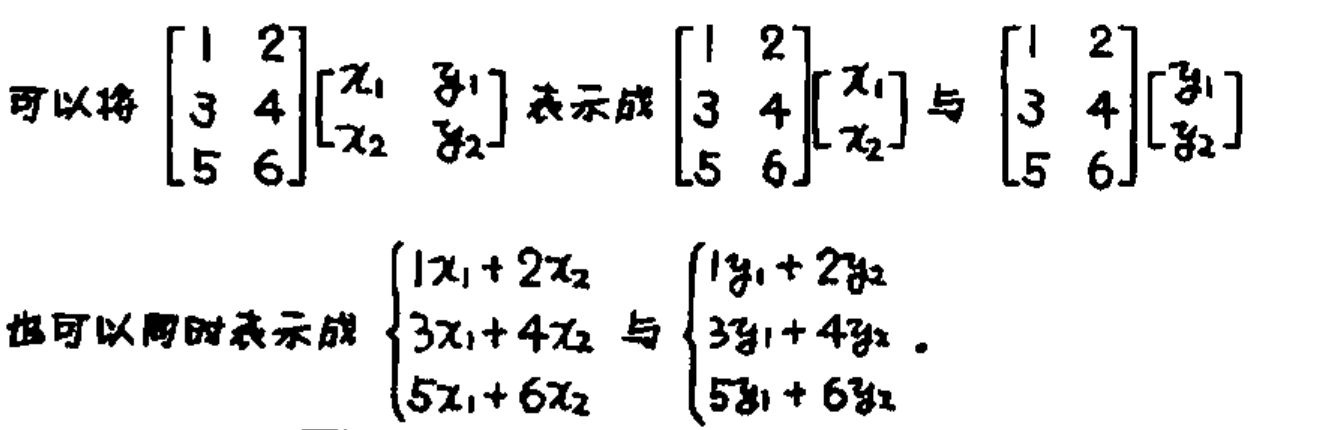 可以将 [1 2; 3 4; 5 6] [x₁ y₁; x₂ y₂] 表示成 [1 2; 3 4; 5 6] [x₁; x₂] 与 [1 2; 3 4; 5 6] [y₁; y₂]
也可以同时表示成 { 1x₁ + 2x₂; 3x₁ + 4x₂; 5x₁ + 6x₂ 与 { 1y₁ + 2y₂; 3y₁ + 4y₂; 5y₁ + 6y₂ .